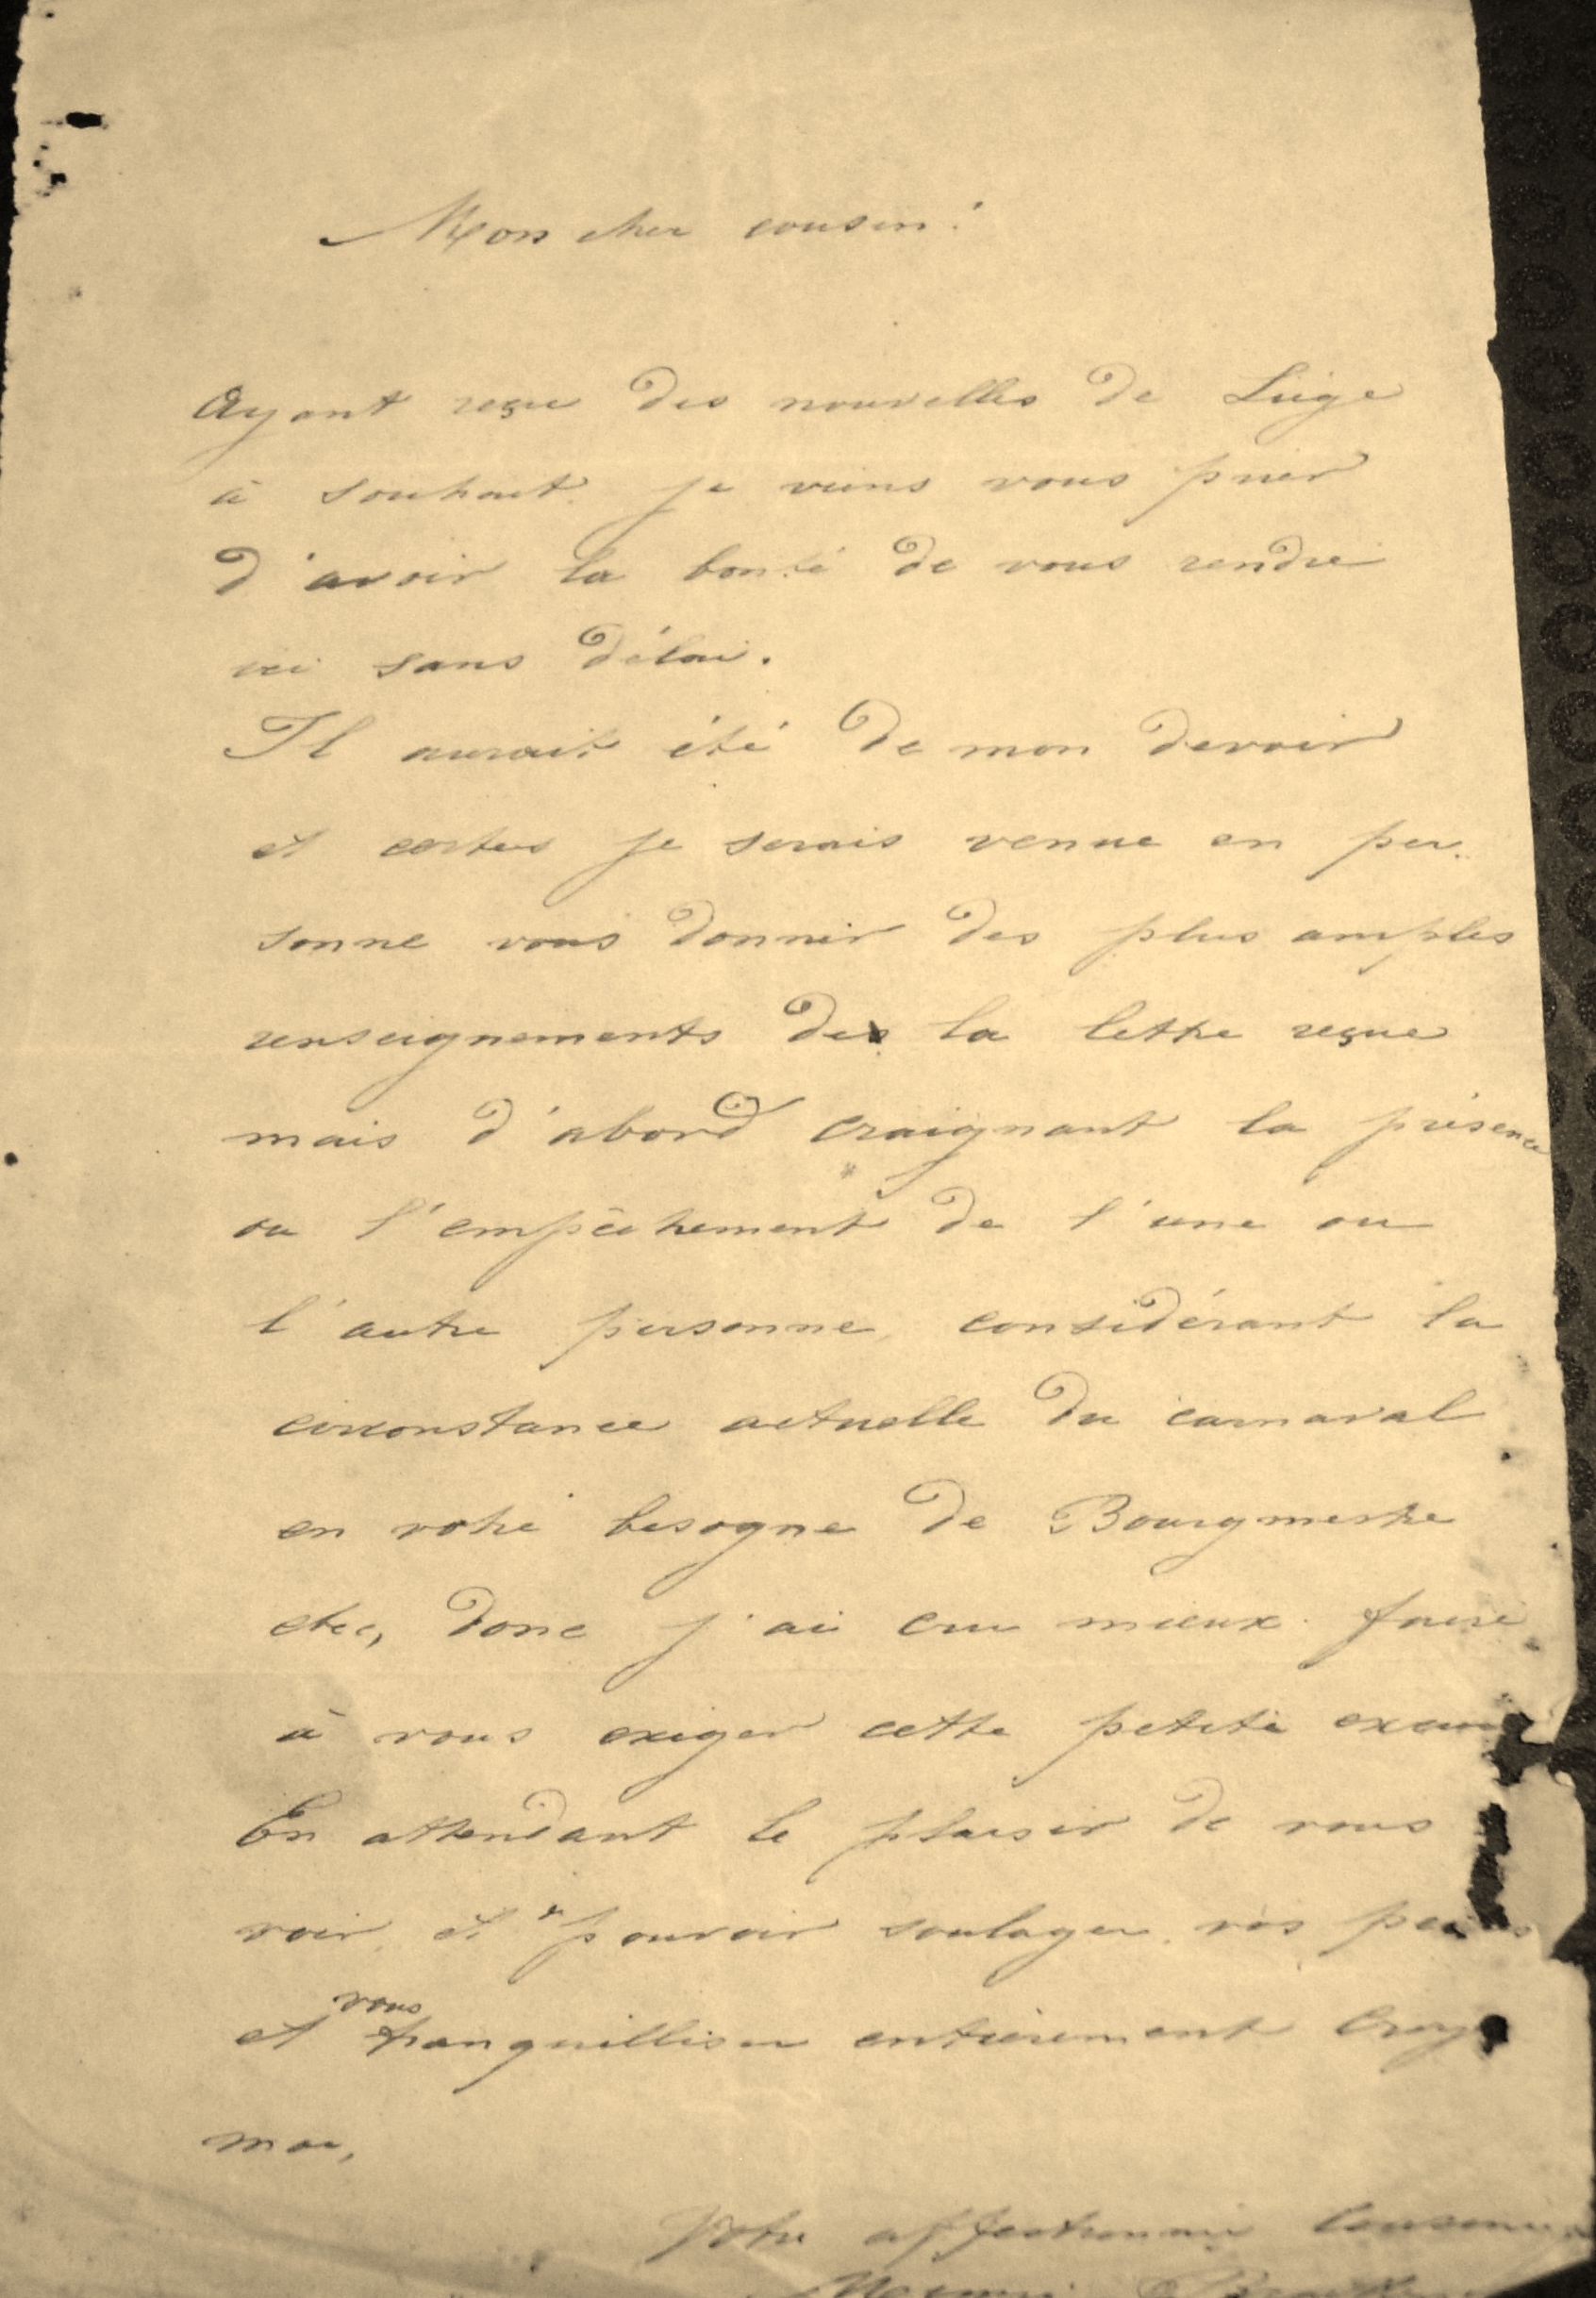 Mon cher cousin!
Ayant reçu des nouvelles de Liège
à souhait je viens vous prier
d'avoir la bonté de vous rendre
ici sans délai.
Il aurait été de mon devoir
et certes je serais venue en per-
sonne vous donner des plus amples
renseignements de la lettre reçue
mais d'abord craignant la présence
ou l'empêchement de l'une ou
l'autre personne, considérant la
circonstance actuelle du carnaval
en votre besogne de Bourgmestre
etc, donc j'ai cru mieux faire
à vous exiger cette petite
En attendant le plaisir de vous
voir, et de pouvoir soulager vos
et vous tranquilliser entièrement
moi,
Votre affectionnée cousine